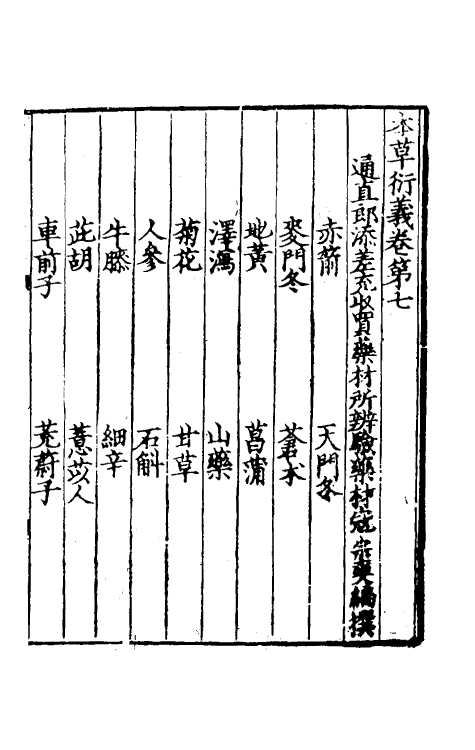 本草衍義卷第七
通直郎添差充收買藥材所辨驗藥材寇宗奭編撰
赤箭　天門冬
麥門冬　蒼朮
地黃　菖蒲
澤瀉　山藥
菊花　甘草
人參　石斛
牛膝　細辛
茈胡　薏苡人
車前子　茺蔚子